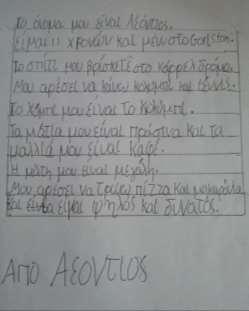 Το όνομα μου είναι Λεόντιος.
Είμαι 11 χρονών και μένω στο
Το σπίτι μου βρίσκετε στο δρόμο.
Μου αρέσει να κάνω κολύμπι και τένις.
Το χόμπι μου είναι το κολύμπι.
Τα μάτια μου είναι πράσινα και τα
μαλλιά μου είναι καφέ.
Η μύτη μου είναι μεγάλη.
Μου αρέσει να τρώω πίτζα και μακαρόνια
και είμαι ψηλός και δυνατός.
Από Λεοντιος